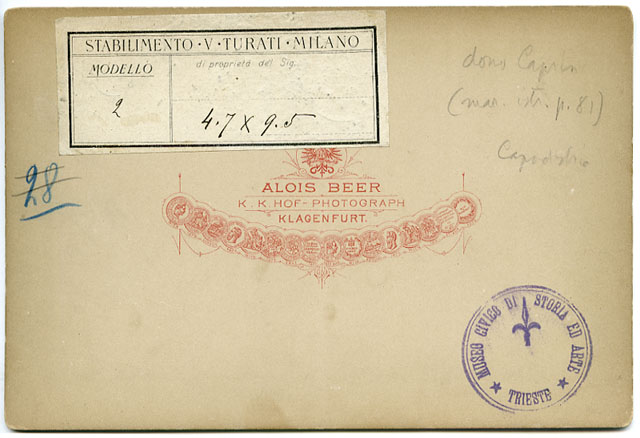 STABILIMENTO · V · TURATI · MILANO
MODELLO
di proprietà del Sig.
2
4.7 X 9.5
dono Caprin
(mar. istr. p. 81)
Capodistria
28
ALOIS BEER
K. K. HOF-PHOTOGRAPH
KLAGENFURT.
MUSEO CIVICO DI STORIA ED ARTE
TRIESTE